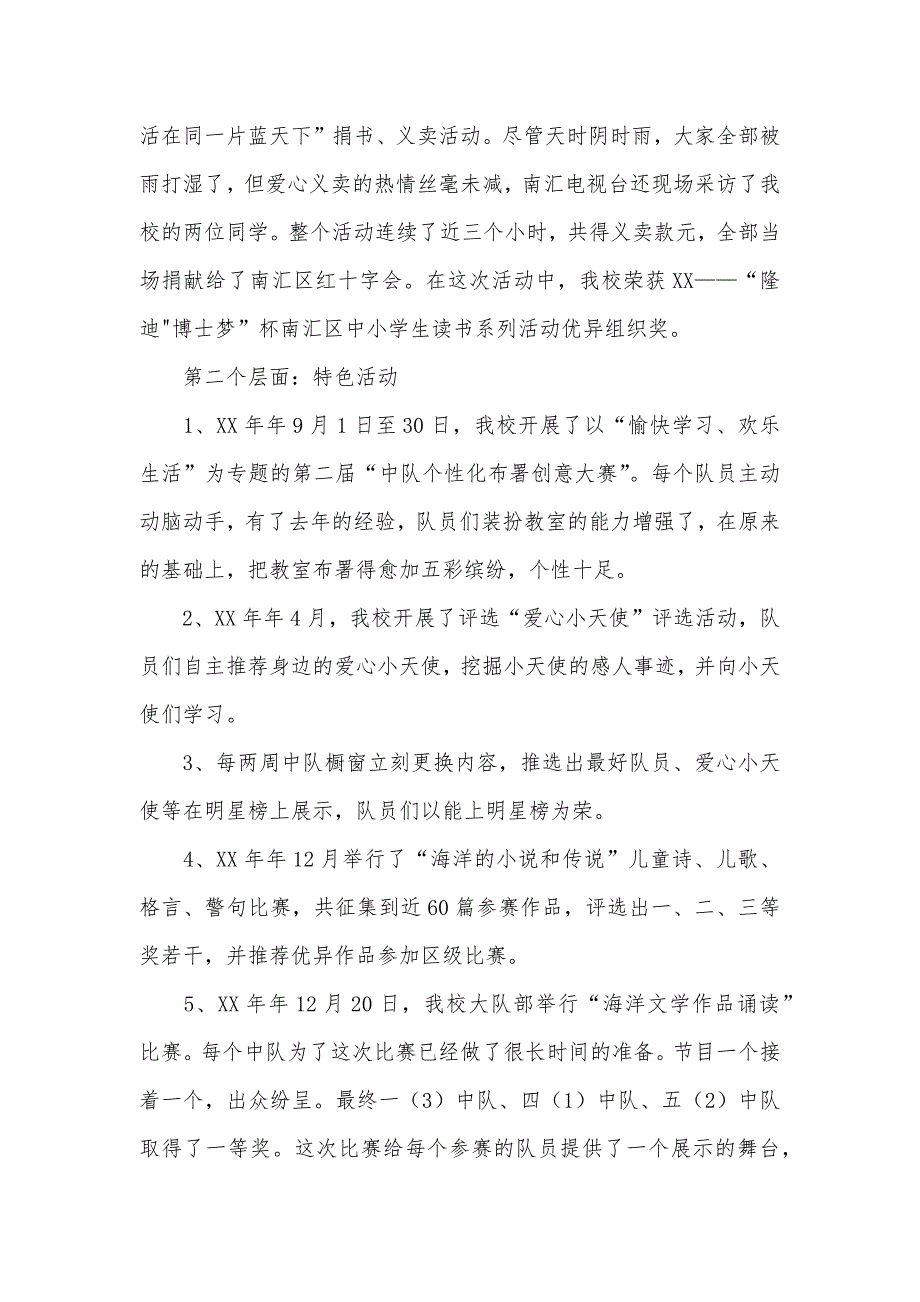 活在同一片蓝天下”捐书、义卖活动。尽管天时阴时雨，大家全部被
雨打湿了，但爱心义卖的热情丝毫未减，南汇电视台还现场采访了我
校的两位同学。整个活动连续了近三个小时，共得义卖款元，全部当
场捐献给了南汇区红十字会。在这次活动中，我校荣获 XX——“隆
迪"博士梦”杯南汇区中小学生读书系列活动优异组织奖。
第二个层面：特色活动
1、XX 年年 9 月 1 日至 30 日，我校开展了以“愉快学习、欢乐
生活”为专题的第二届“中队个性化布署创意大赛”。每个队员主动
动脑动手，有了去年的经验，队员们装扮教室的能力增强了，在原来
的基础上，把教室布署得愈加五彩缤纷，个性十足。
2、XX 年年 4 月，我校开展了评选“爱心小天使”评选活动，队
员们自主推荐身边的爱心小天使，挖掘小天使的感人事迹，并向小天
使们学习。
3、每两周中队橱窗立刻更换内容，推选出最好队员、爱心小天
使等在明星榜上展示，队员们以能上明星榜为荣。
4、XX 年年 12 月举行了“海洋的小说和传说”儿童诗、儿歌、
格言、警句比赛，共征集到近 60 篇参赛作品，评选出一、二、三等
奖若干，并推荐优异作品参加区级比赛。
5、XX 年年 12 月 20 日，我校大队部举行“海洋文学作品诵读”
比赛。每个中队为了这次比赛已经做了很长时间的准备。节目一个接
着一个，出众纷呈。最终一（3）中队、四（1）中队、五（2）中队
取得了一等奖。这次比赛给每个参赛的队员提供了一个展示的舞台，